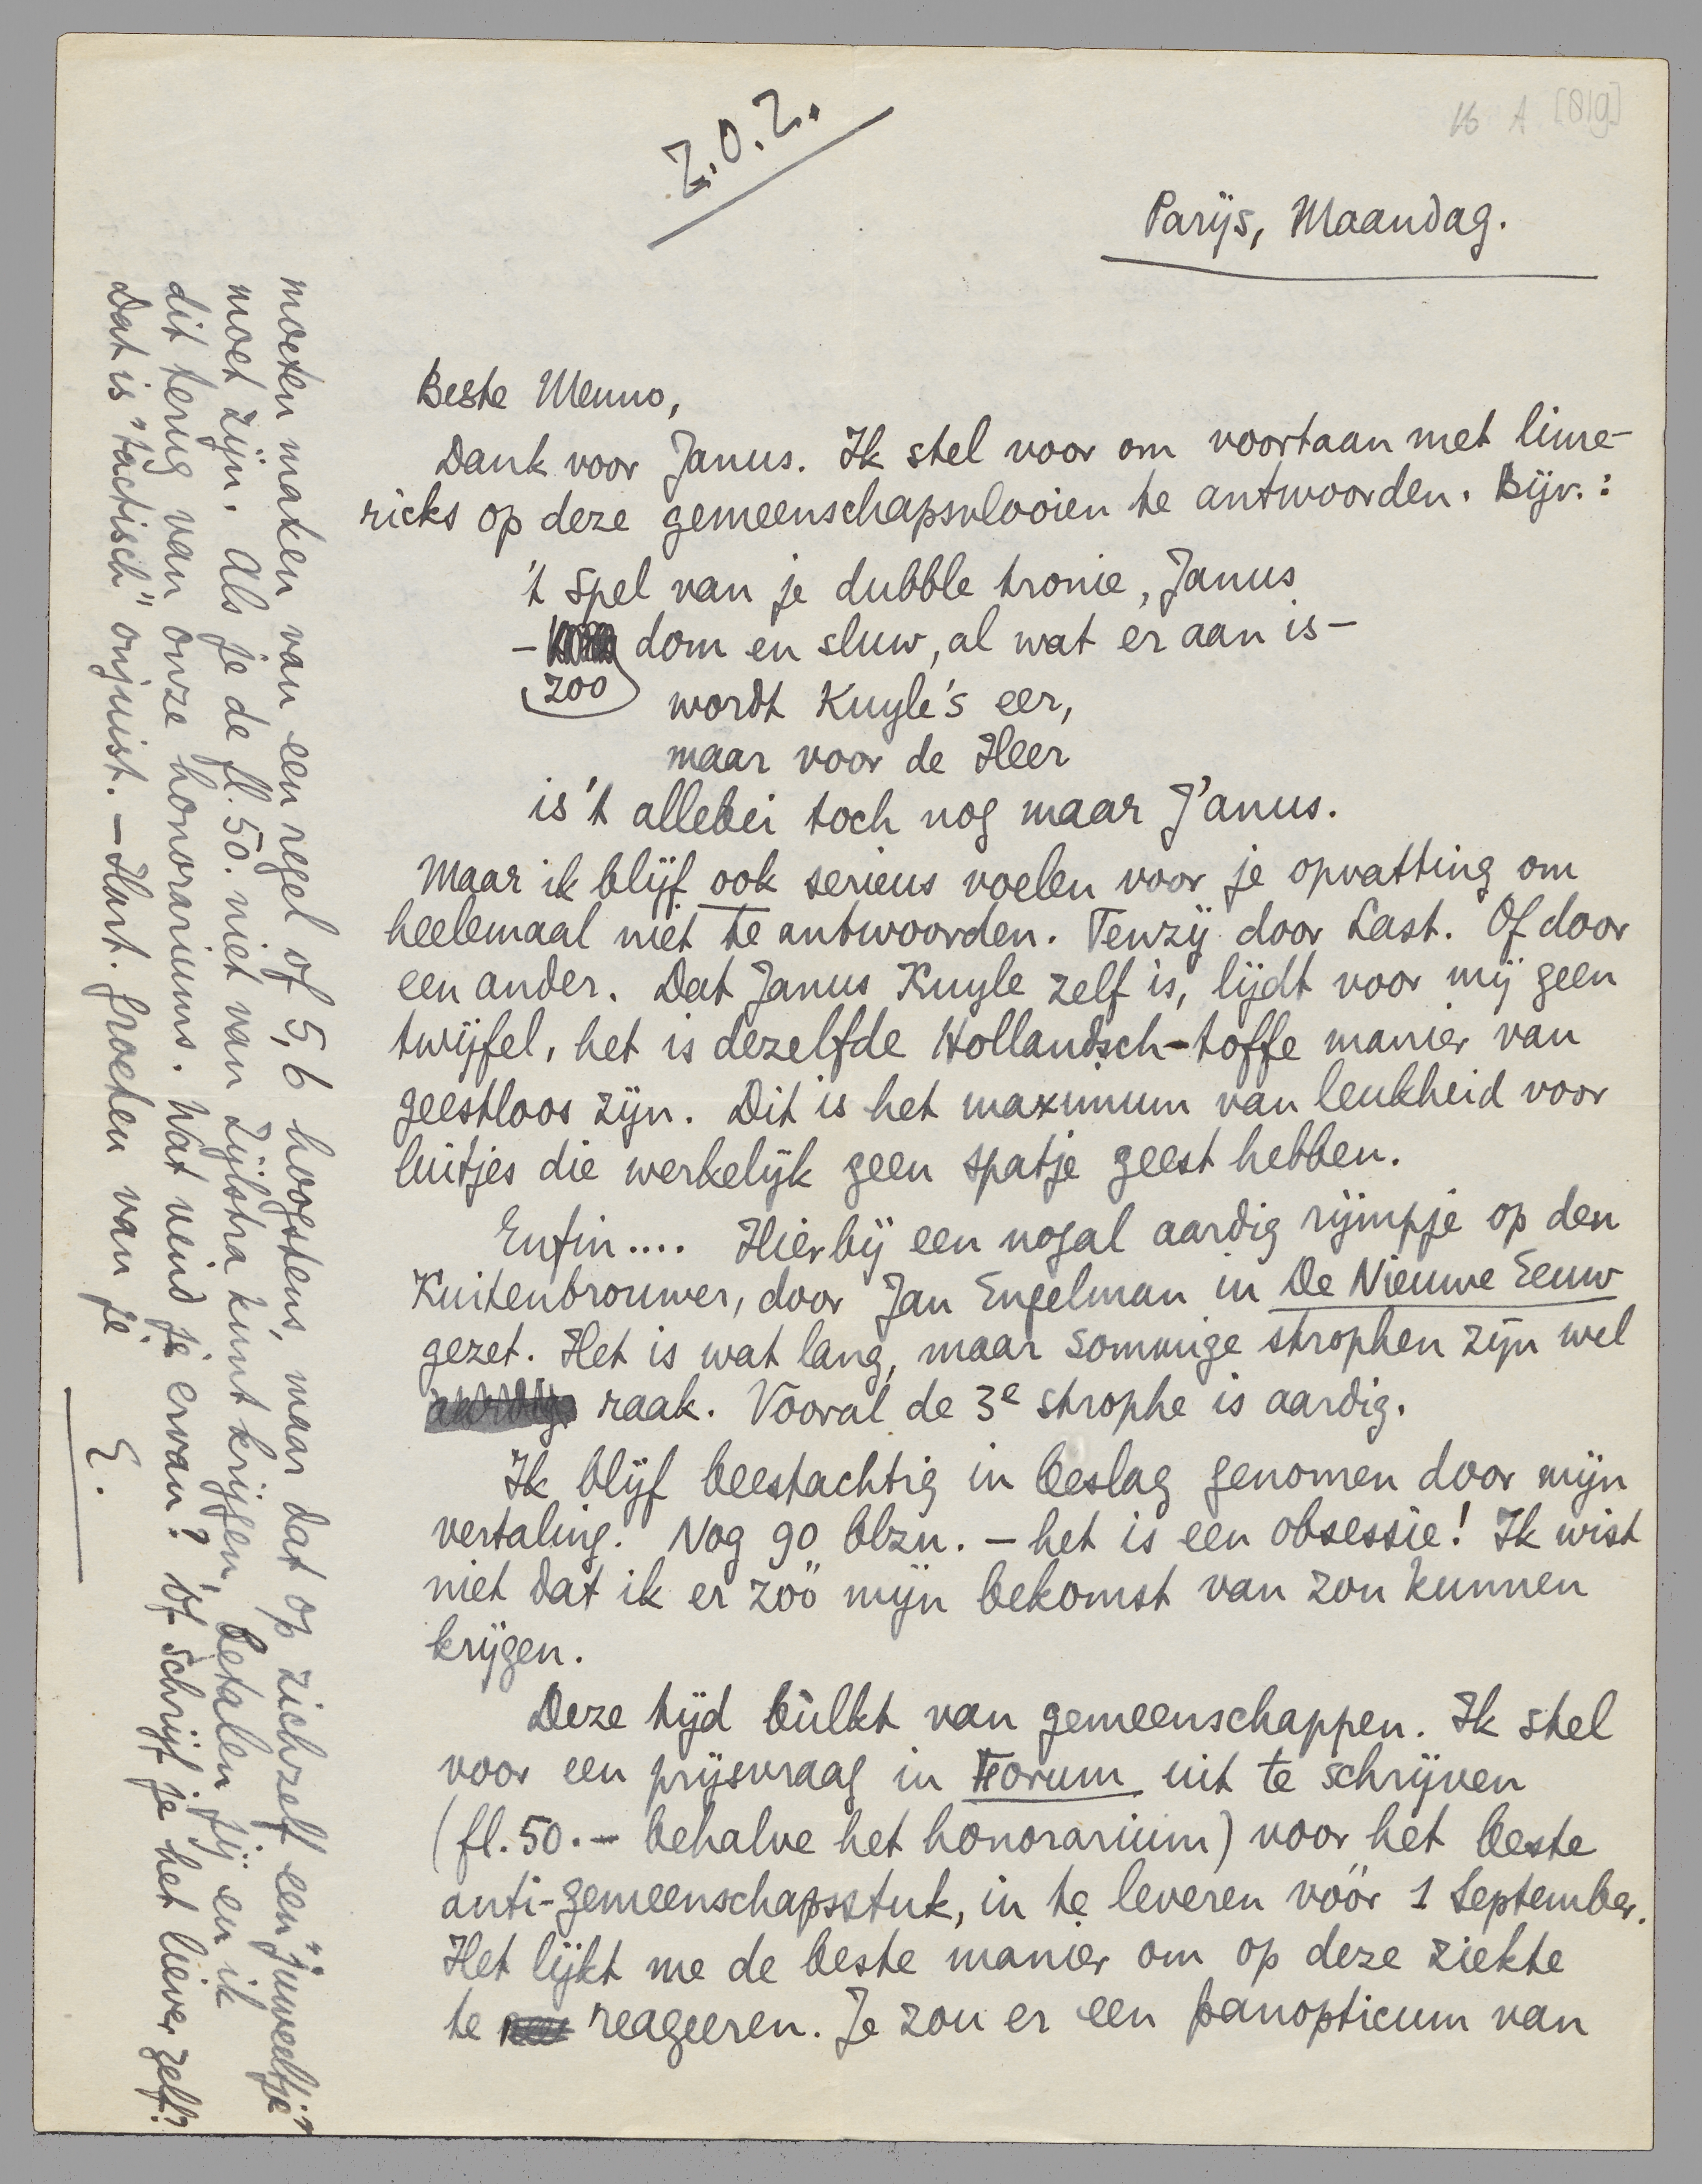 Z.O.Z.
16 A [819]
Parijs, Maandag.
Beste Menno,
Dank voor Janus. Ik stel voor om voortaan met lime-
ricks op deze gemeenschapsvlooien te antwoorden. Bijv.:
't spel van je dubble tronie, Janus
– zoo dom en sluw, al wat er aan is –
wordt Kuyle's eer,
maar voor de Heer
is 't allebei toch nog maar J'anus.
Maar ik blijf ook serieus voelen voor je opvatting om
heelemaal niet te antwoorden. Tenzij door Last. Of door
een ander. Dat Janus Kuyle zelf is, lijdt voor mij geen
twijfel, het is dezelfde Hollandsch-toffe manier van
geestloos zijn. Dit is het maximum van leukheid voor
luitjes die werkelijk geen spatje geest hebben.
Enfin.... Hierbij een nogal aardig rijmpje op den
Kuitenbrouwer, door Jan Engelman in De Nieuwe Eeuw
gezet. Het is wat lang, maar sommige strophen zijn wel
raak. Vooral de 3e strophe is aardig.
Ik blijf beestachtig in beslag genomen door mijn
vertaling. Nog 90 blzn. – het is een obsessie! Ik wist
niet dat ik er zóó mijn bekomst van zou kunnen
krijgen.
Deze tijd bùlkt van gemeenschappen. Ik stel
voor een prijsvraag in Forum uit te schrijven
(fl. 50.– behalve het honorarium) voor het beste
anti-gemeenschapsstuk, in te leveren vóór 1 September.
Het lijkt me de beste manier om op deze ziekte
te reageeren. Je zou er een panopticum van
moeten maken van een regel of 5, 6 hoogstens, maar dat op zichzelf een "juweeltje"
moet zijn. Als je de fl. 50. niet van Zijlstra kunt krijgen, betalen jij en ik
dit terug van onze honorariums. Wat vind je ervan? Of schrijf je het liever zelf?
Dat is "tactisch" onjuist. – Hart. groeten van je
E.